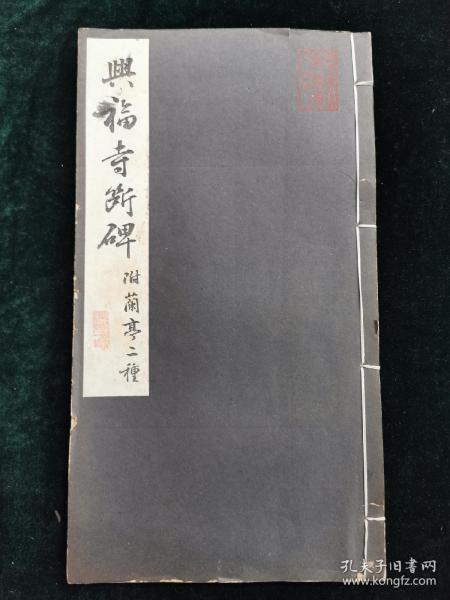 興福寺斷碑
附蘭亭二種
孔夫子旧书网
www.kongfz.com